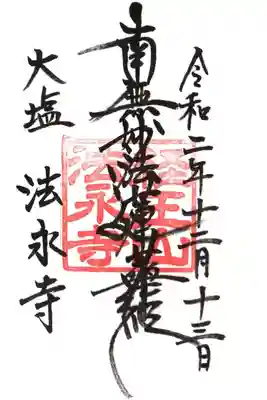 令和二年十二月十三日
南無妙法蓮華経
大塩 法永寺
王山
法永寺